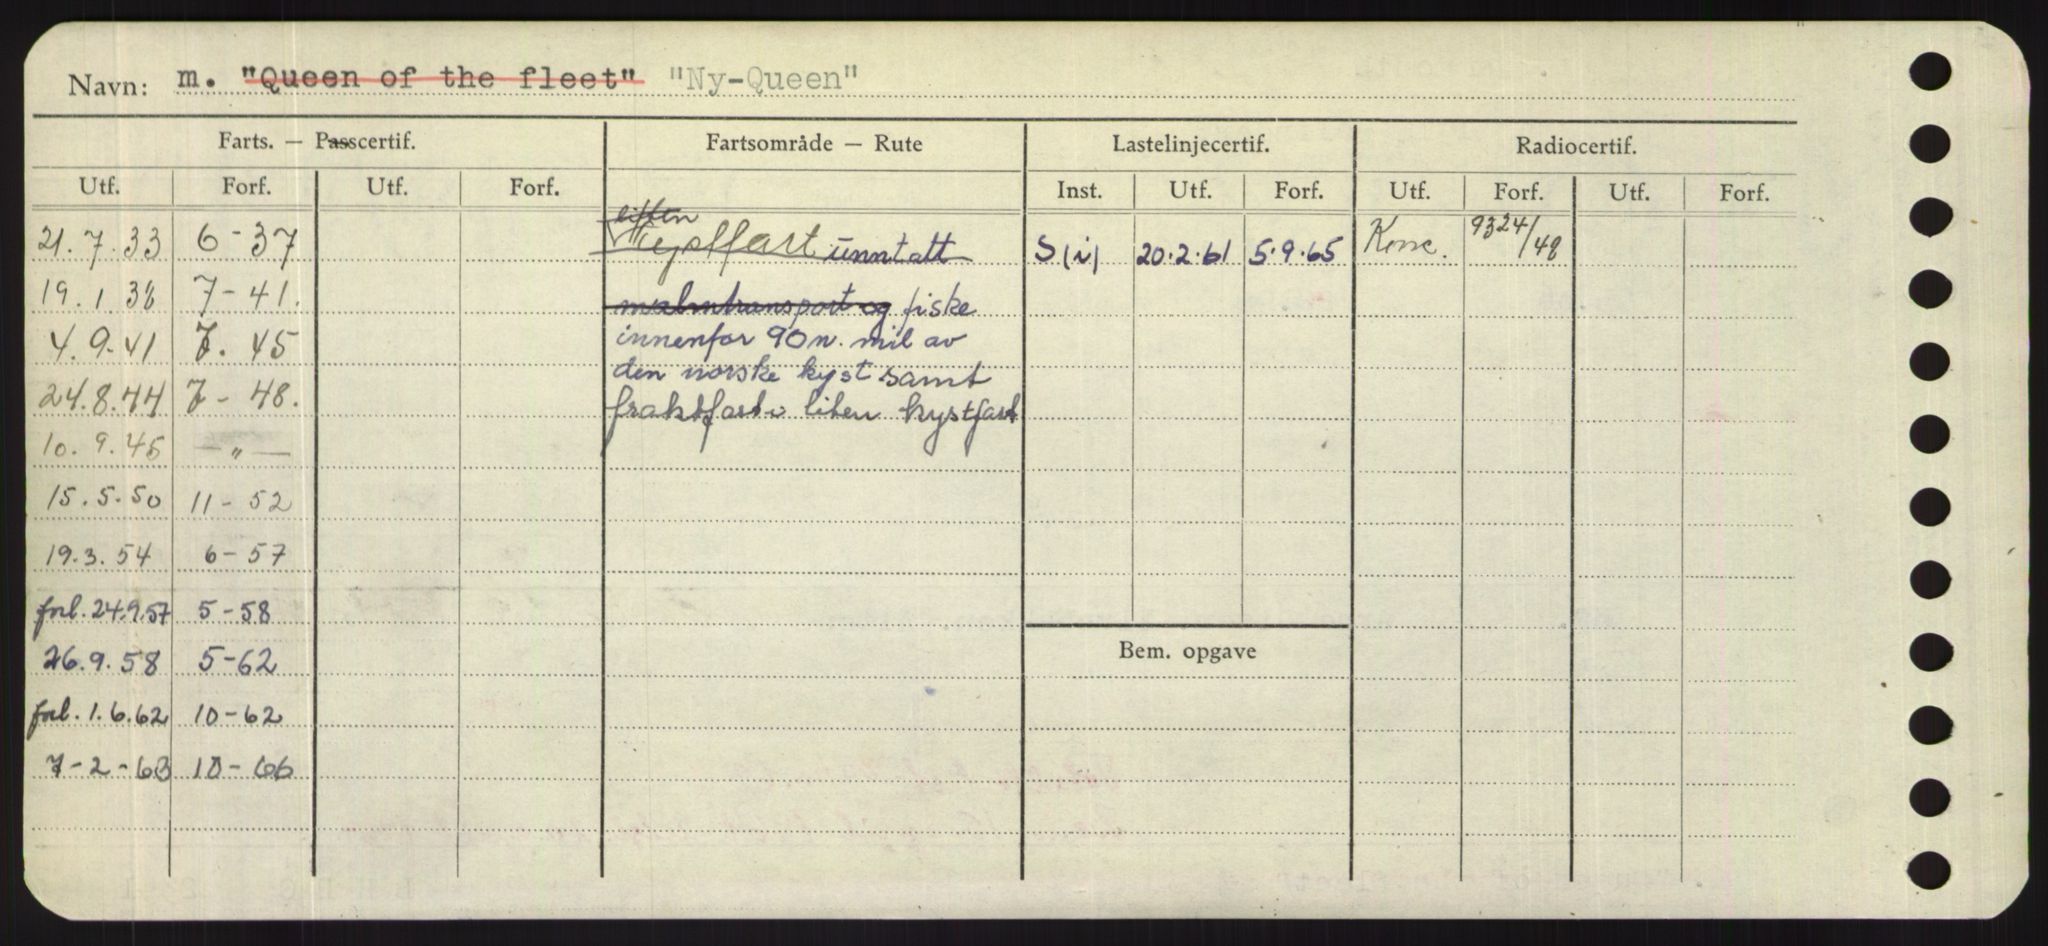 Navn: m. "Queen of the fleet" "Ny-Queen"
Farts. — Passcertif. Fartsområde — Rute Lastelinjecertif. Radiocertif.
Utf. Forf. Utf. Forf. Inst. Utf. Forf. Utf. Forf. Utf. Forf.
liten
21.7.33 6-37 Kystfart unntatt S(i) 20.2.61 5.9.65 Konc. 9324/48
19.1.38 7-41. malmtransport og fiske
4.9.41 7.45 innenfor 90 n. mil av
den norske kyst samt
24.8.44 7-48. fraktfart i liten kystfart
10.9.45 — " —
15.5.50 11-52
19.3.54 6-57
forl. 24.9.57 5-58
26.9.58 5-62 Bem. opgave
forl. 1.6.62 10-62
7-2-63 10-66